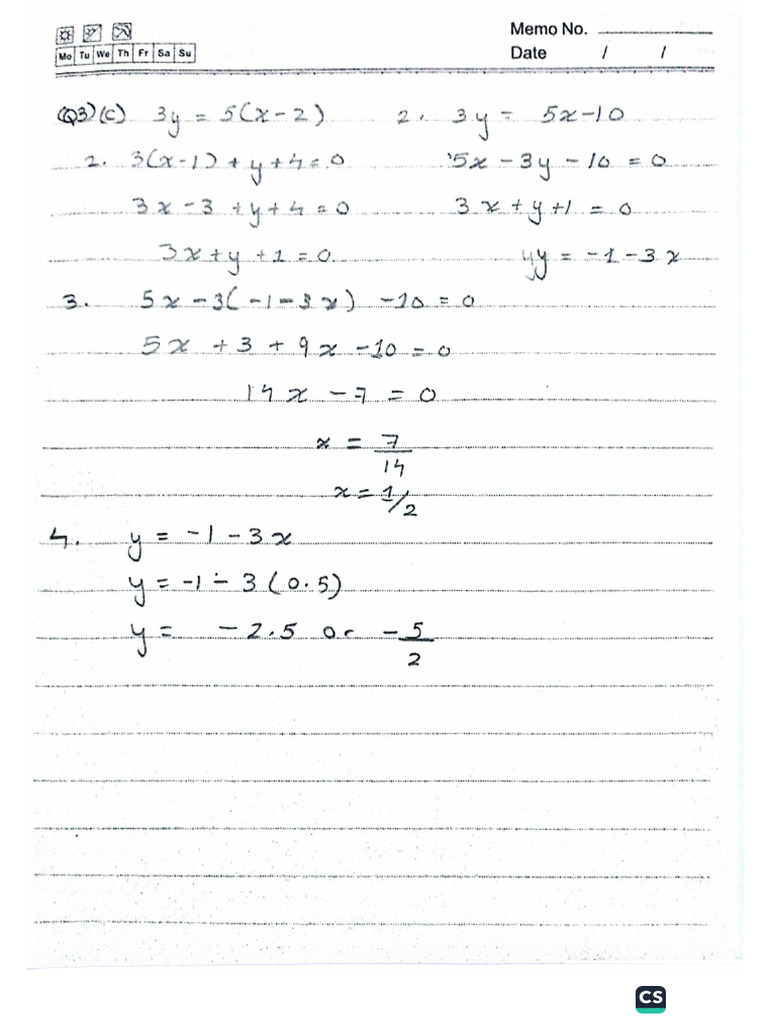 Memo No.
Mo Tu We Th Fr Sa Su
Date / /
Q3)(c) 3y = 5(x-2) 2. 3y = 5x-10
2. 3(x-1) + y+4=0 5x - 3y - 10 = 0
3x-3 +y+4=0 3x+y+1 = 0
3x+y+1=0 yy = -1-3x
3. 5x-3(-1-3x) -10=0
5x +3 + 9x -10=0
14x -7 = 0
x = 7/14
x = 1/2
4. y = -1-3x
y = -1-3(0.5)
y = -2.5 or -5/2
CS